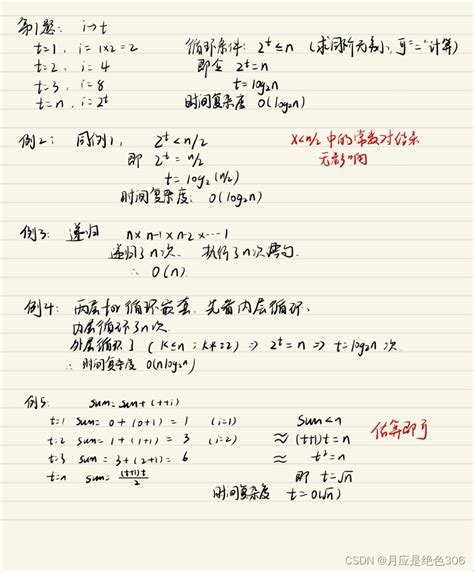 第1题: i→t
t=1, i=1×2=2 循环条件: 2^t≤n (求同阶无穷小,可"="计算)
t=2, i=4 即令 2^t=n
t=3, i=8 t=log₂n
t=n, i=2^t 时间复杂度 O(log₂n)
例2: 同例1, 2^t<n/2 x<n/2 中的常数对结果
即 2^t=n/2 无影响
t=log₂(n/2)
时间复杂度: O(log₂n)
例3: 递归 n×n-1×n-2×···1
递归了n次, 执行了n次语句
∴ O(n)
例4: 两层for循环嵌套, 先看内层循环,
内层循环了n次
外层循环了 (k≤n; k*=2) => 2^t=n => t=log₂n 次
∴ 时间复杂度 O(nlog₂n)
例5: sum=sum+(++i)
t=1 sum=0+(0+1)=1 (i=1) sum<n 估算即可
t=2 sum=1+(1+1)=3 (i=2) ≈ (t+1)t=n
t=3 sum=3+(2+1)=6 ≈ t²=n
t=n sum=(t+1)t/2 即 t=√n
时间复杂度 t=O(√n)
CSDN @月应是绝色306